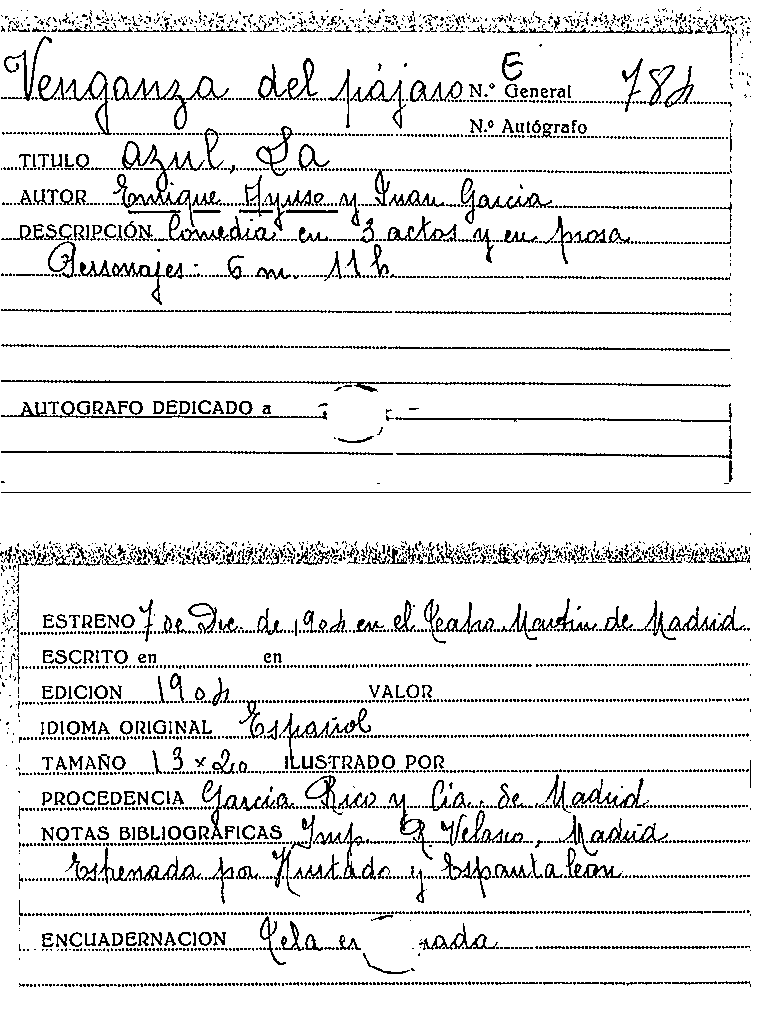 Venganza del pájaro N.º General E 784
N.º Autógrafo
TITULO azul, La
AUTOR Enrique Ayuso y Juan García
DESCRIPCIÓN Comedia en 3 actos y en prosa
Personajes: 6 m. 11 h.
AUTOGRAFO DEDICADO a
ESTRENO 7 de Dic. de 1904 en el Teatro Martín de Madrid
ESCRITO en en
EDICION 1904 VALOR
IDIOMA ORIGINAL Español
TAMAÑO 13 x 20 ILUSTRADO POR
PROCEDENCIA García Rico y Cía. de Madrid
NOTAS BIBLIOGRÁFICAS Imp. R Velasco, Madrid
Estrenada por Hurtado y Espantaleón
ENCUADERNACION Tela